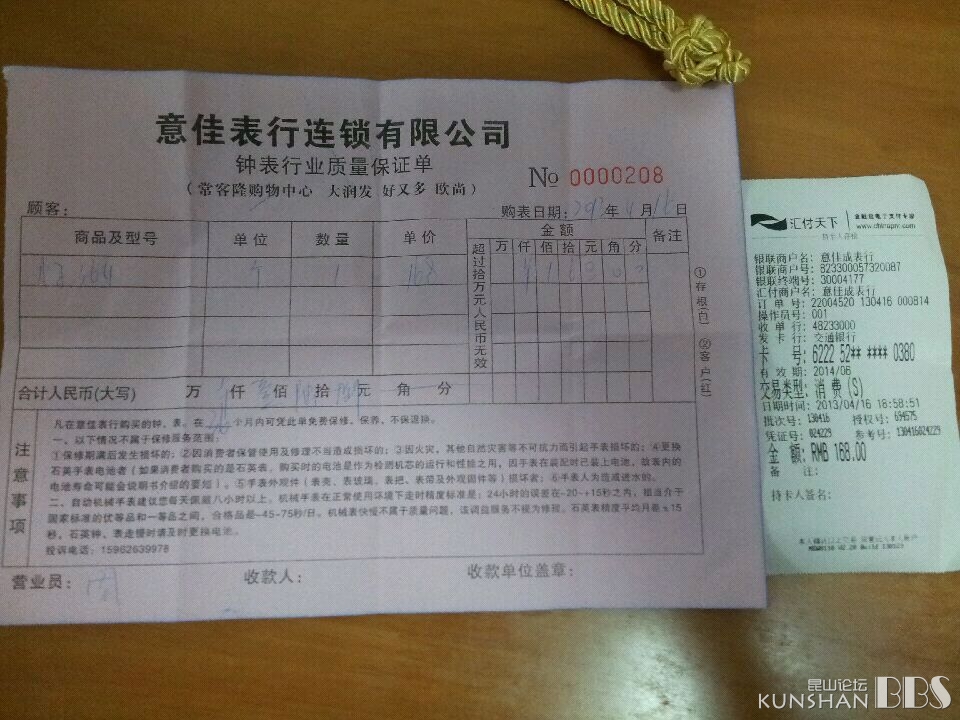 意佳表行连锁有限公司
钟表行业质量保证单
（常客隆购物中心 大润发 好又多 欧尚）
No 0000208
顾客：
购表日期：2013年4月16日
商品及型号 单位 数量 单价 金额 备注
超过拾万元人民币无效 万 仟 佰 拾 元 角 分
个 1 168
①存根(白) ②客户(红)
合计人民币(大写) 万 仟 佰 拾 元 角 分
注意事项
凡在意佳表行购买的钟、表。在 个月内可凭此单免费保修、保养、不保退换。
一、以下情况不属于保修服务范围：
①保修期满后发生损坏的；②因消费者保管使用及修理不当造成损坏的；③因火灾，其他自然灾害等不可抗力而引起手表损坏的；④更换
石英手表电池者（如果消费者购买的是石英表。购买时的电池是作为检测机芯的运行和性能之用，因手表在装配时已装上电池，故表内的
电池寿命可能会说明书介绍的要短）。⑤手表外观件（表壳、表玻璃、表把、表带及外观固件等）损坏表；⑥手表人为造成进水的。
二、自动机械手表建议您每天佩戴八小时以上，机械手表在正常使用环境下走时精度标准是：24小时的误差在-20~+15秒之内，相当介于
国家标准的优等品和一等品之间，合格品是-45-75秒/日。机械表快慢不属于质量问题，该调益服务不视为修报。石英表精度平均月差是±15
秒，石英钟、表走慢时请及时更换电池。
投诉电话：15962639978
营业员： 周 收款人： 收款单位盖章：
汇付天下 金融级电子支付专家
www.chinapnr.com
持卡人存根
银联商户名: 意佳成表行
银联商户号: 823300057320087
银联终端号: 30004177
汇付商户名: 意佳成表行
订 单 号: 22004520 130416 000814
操作员号: 001
收 单 行: 48233000
发 卡 行: 交通银行
卡 号: 6222 52** **** 0380
有 效 期: 2014/06
交易类型: 消 费 (S)
日期时间: 2013/04/16 18:58:51
批次号: 130416 授权号: 694575
凭证号: 024229 参考号: 130416024229
金 额: RMB 168.00
备 注:
持卡人签名:
昆山论坛
KUNSHAN BBS